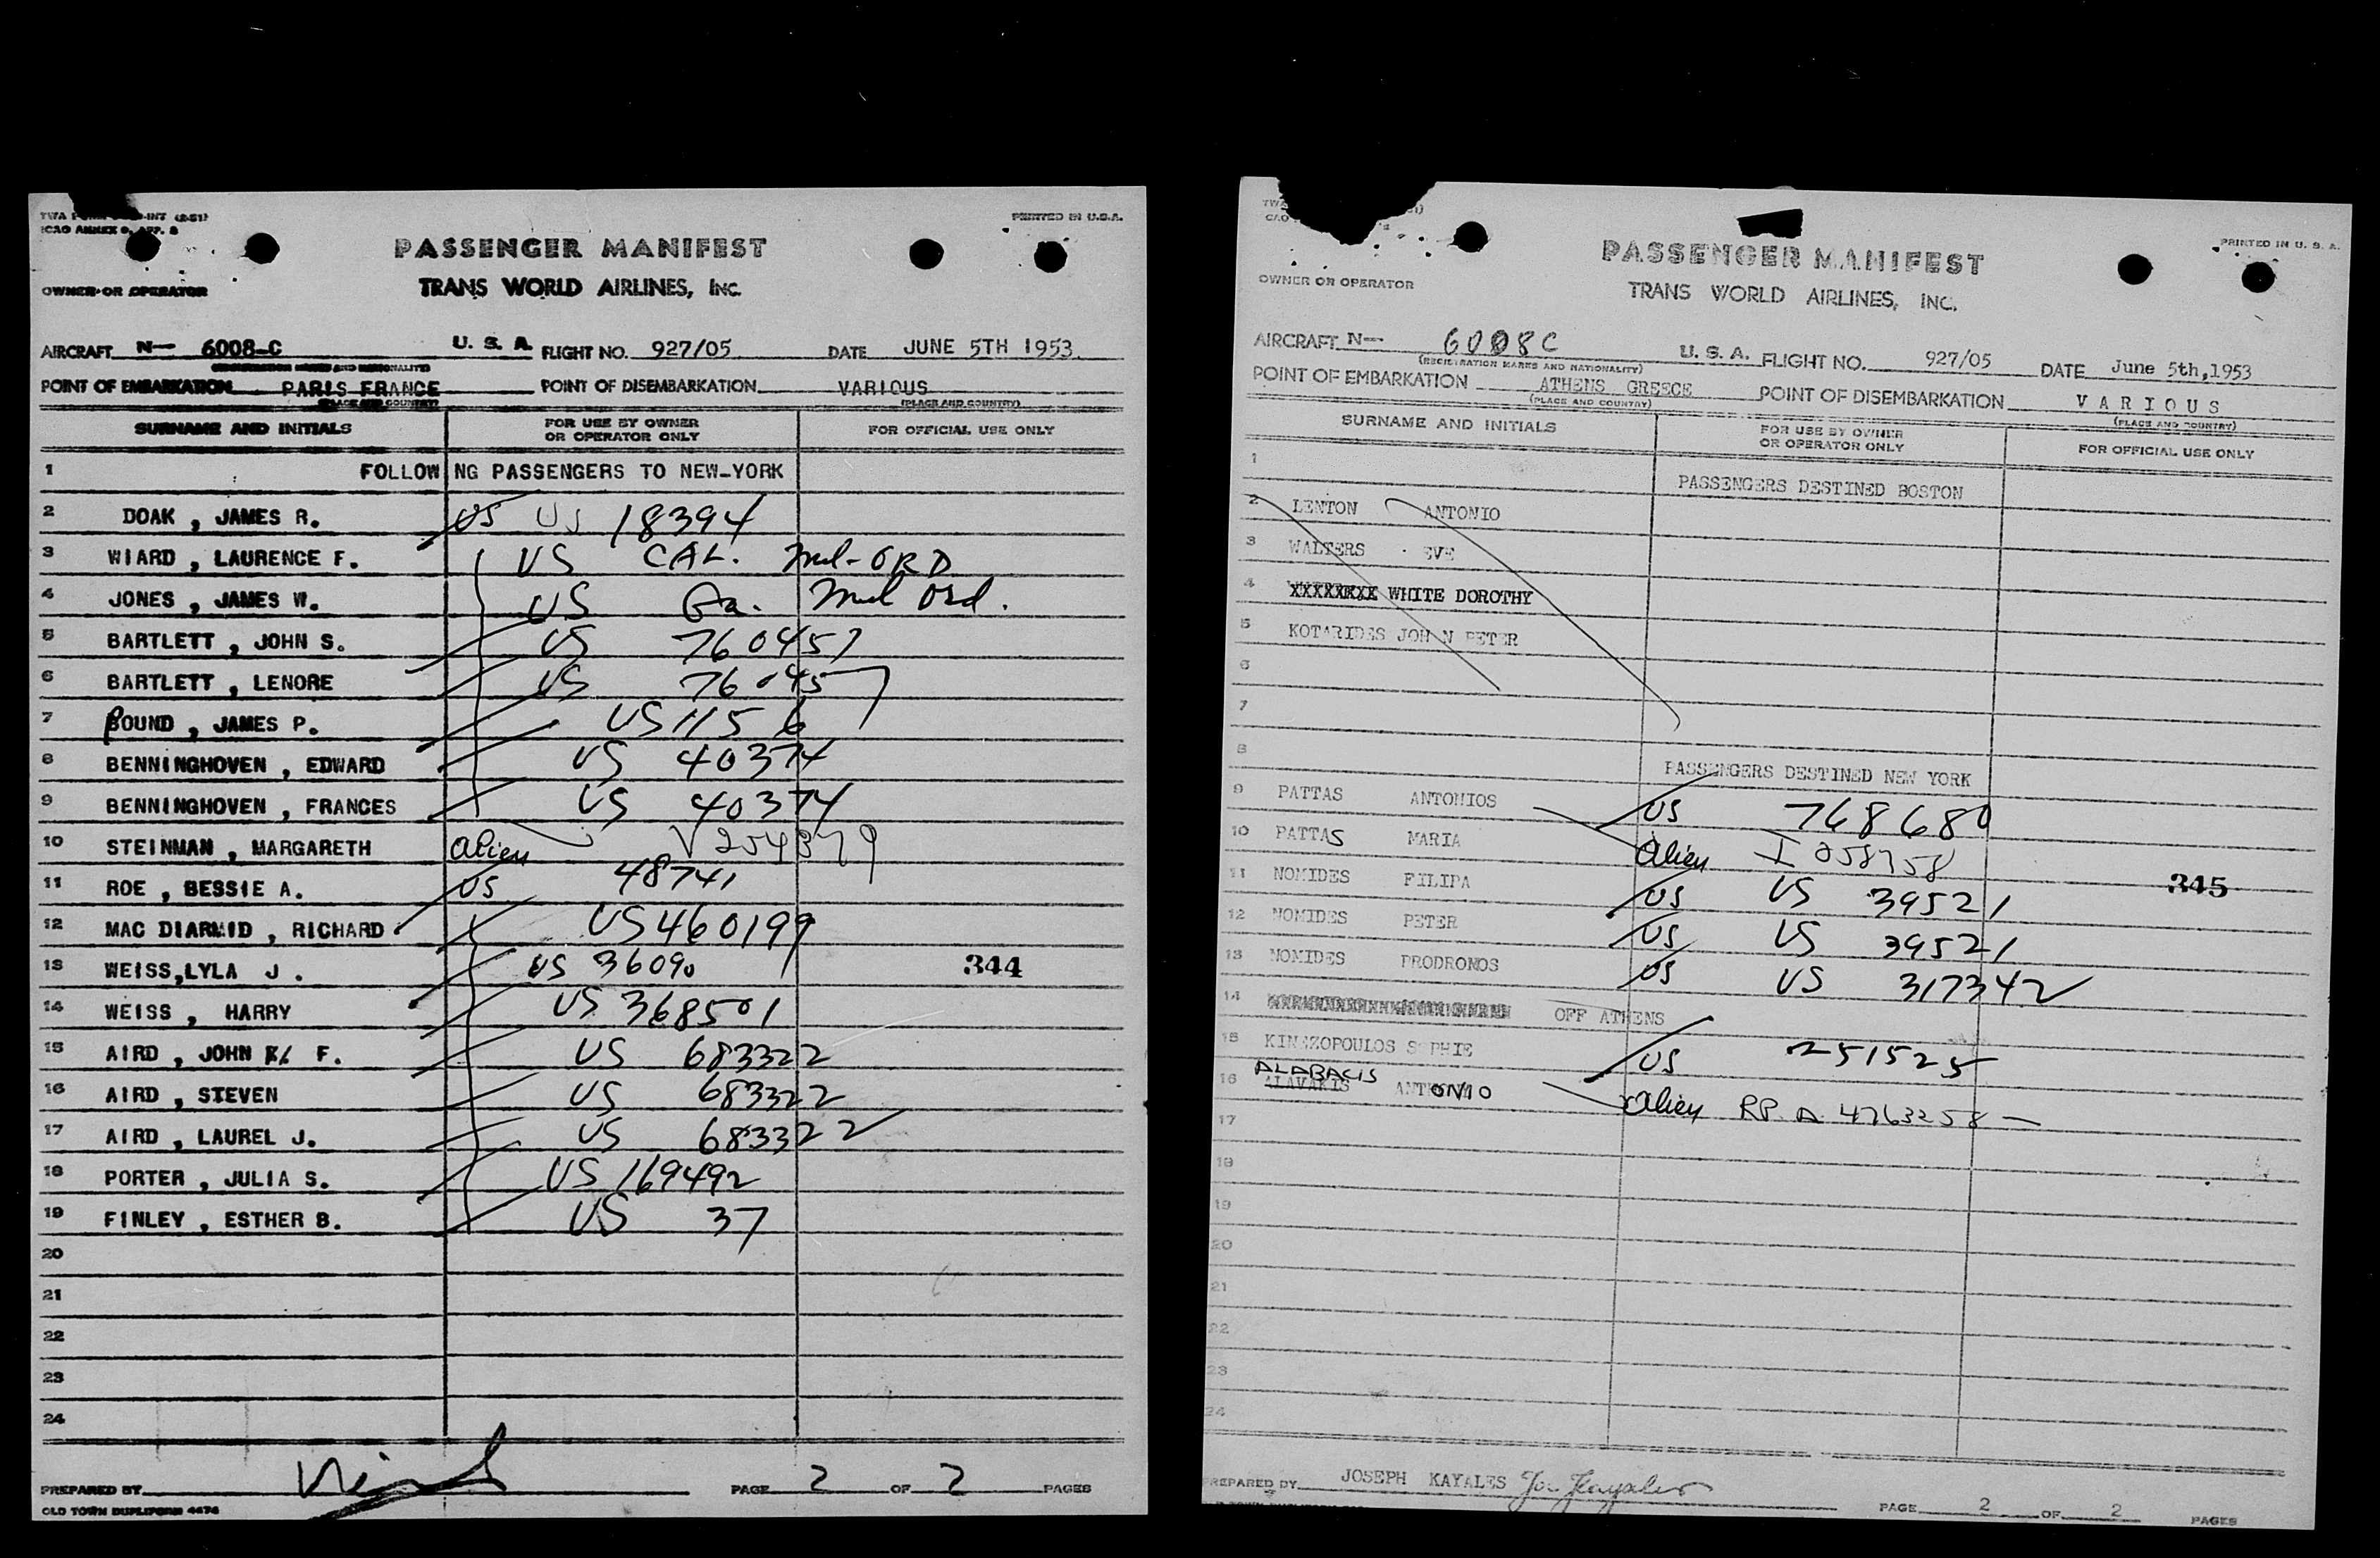 PRINTED IN U.S.A.
ICAO ANNEX 9, APP. 8
PASSENGER MANIFEST
OWNER OR OPERATOR TRANS WORLD AIRLINES, INC.
AIRCRAFT N— 6008-C U. S. A. FLIGHT NO. 927/05 DATE JUNE 5TH 1953
POINT OF EMBARKATION PARIS FRANCE POINT OF DISEMBARKATION VARIOUS
(PLACE AND COUNTRY) (PLACE AND COUNTRY)
SURNAME AND INITIALS FOR USE BY OWNER OR OPERATOR ONLY FOR OFFICIAL USE ONLY
1 FOLLOW NG PASSENGERS TO NEW-YORK
2 DOAK , JAMES R. US US 18394
3 WIARD , LAURENCE F. US CAL. Mil-ORD
4 JONES , JAMES W. US Ga. Mil Ord.
5 BARTLETT , JOHN S. US 760457
6 BARTLETT , LENORE US 760457
7 POUND , JAMES P. US 1156
8 BENNINGHOVEN , EDWARD US 40374
9 BENNINGHOVEN , FRANCES US 40374
10 STEINMAN , MARGARETH alien V254879
11 ROE , BESSIE A. US 48741
12 MAC DIARMID , RICHARD US 460199
13 WEISS,LYLA J . US 36090 344
14 WEISS , HARRY US 368501
15 AIRD , JOHN F. US 683322
16 AIRD , STEVEN US 683322
17 AIRD , LAUREL J. US 683322
18 PORTER , JULIA S. US 169492
19 FINLEY , ESTHER B. US 37
20
21
22
23
24
PREPARED BY PAGE 2 OF 2 PAGES
OLD TOWN DUPLIFORM 4474
PRINTED IN U. S. A.
PASSENGER MANIFEST
OWNER OR OPERATOR TRANS WORLD AIRLINES, INC.
AIRCRAFT N— 6008C U. S. A. FLIGHT NO. 927/05 DATE June 5th,1953
(REGISTRATION MARKS AND NATIONALITY)
POINT OF EMBARKATION ATHENS GREECE POINT OF DISEMBARKATION V A R I O U S
(PLACE AND COUNTRY) (PLACE AND COUNTRY)
SURNAME AND INITIALS FOR USE BY OWNER OR OPERATOR ONLY FOR OFFICIAL USE ONLY
1 PASSENGERS DESTINED BOSTON
2 LENTON ANTONIO
3 WALTERS EVE
4 XXXXXXXX WHITE DOROTHY
5 KOTARIDES JOH N PETER
6
7
8 PASSENGERS DESTINED NEW YORK
9 PATTAS ANTONIOS US 768680
10 PATTAS MARIA alien I 058758
11 NOMIDES FILIPA US US 39521 345
12 NOMIDES PETER US US 39521
13 NOMIDES PRODROMOS US US 317342
14 OFF ATHENS
15 KINEZOPOULOS S PHIE US 251525
ALABACIS
16 ALAVAKIS ANTONIO alien RP. A 4763258
17
18
19
20
21
22
23
24
PREPARED BY JOSEPH KAYALES Joe Kayales
PAGE 2 OF 2 PAGES